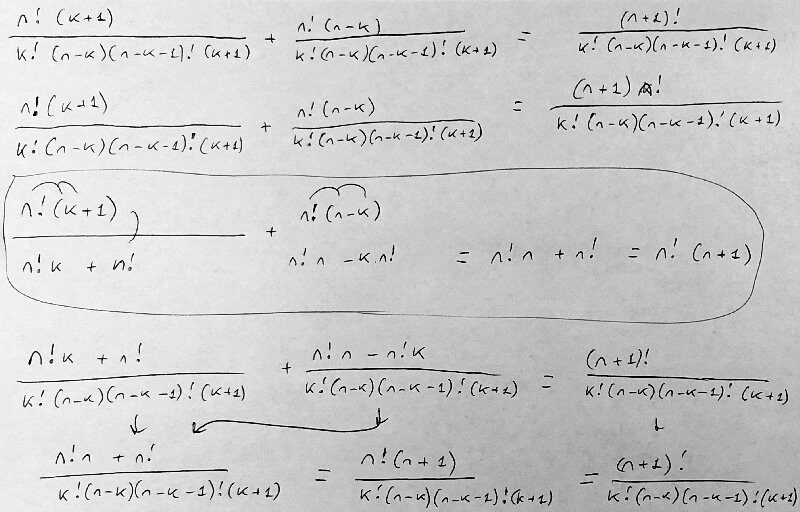 n! (k+1) / k! (n-k)(n-k-1)! (k+1) + n! (n-k) / k! (n-k)(n-k-1)! (k+1) = (n+1)! / k! (n-k)(n-k-1)! (k+1)
n! (k+1) / k! (n-k)(n-k-1)! (k+1) + n! (n-k) / k! (n-k)(n-k-1)! (k+1) = (n+1) n! / k! (n-k)(n-k-1)! (k+1)
n! (k+1) + n! (n-k)
n! k + n! n! n - k n! = n! n + n! = n! (n+1)
n! k + n! / k! (n-k)(n-k-1)! (k+1) + n! n - n! k / k! (n-k)(n-k-1)! (k+1) = (n+1)! / k! (n-k)(n-k-1)! (k+1)
n! n + n! / k! (n-k)(n-k-1)! (k+1) = n! (n+1) / k! (n-k)(n-k-1)! (k+1) = (n+1)! / k! (n-k)(n-k-1)! (k+1)